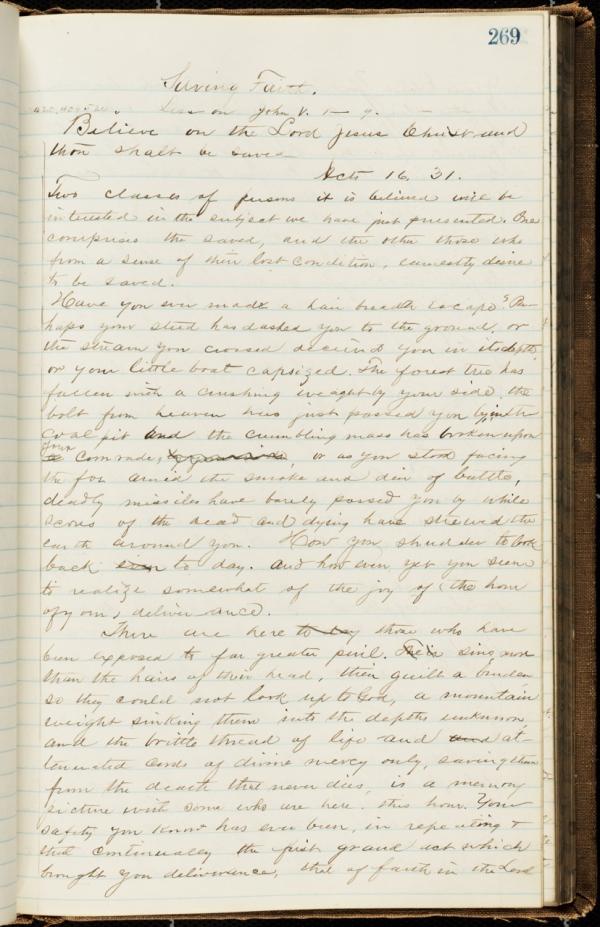 269
Saving Faith.
Less on John V. 1 - 9.
Believe on the Lord Jesus Christ and
thou shalt be saved
Acts 16, 31.
Two classes of persons it is believed will be
interested in the subject we have just presented. One
comprises the saved, and the other those who
from a sense of their lost condition, earnestly desire
to be saved.
Have you ever made a hair breadth escape? Per-
haps your steed has dashed you to the ground, or
the stream you crossed deceived you in its depth,
or your little boat capsized. The forest tree has
fallen with a crushing weight by your side, the
bolt from heaven has just passed you by, in the
coal pit and the crumbling mass has broken upon
your comrade, or as you stood facing
the foe amid the smoke and din of battle,
deadly missiles have barely passed you by while
scores of the dead and dying have strewed the
earth around you. How you shudder to look
back even to day. and how even yet you seem
to realize somewhat of the joy of the hour
of your deliverance.
There are here to day those who have
been exposed to far greater peril. Their sins more
than the hairs of their head, their guilt a burden
so they could not look up to God, a mountain
weight sinking them into the depths unknown
and the brittle thread of life and and at-
tenuated cords of divine mercy only, saving them
from the death that never dies, is a memory
picture with some who are here this hour. Your
safety you know has ever been, in repeating &
that continually the first grand act which
brought you deliverance, that of faith in the Lord